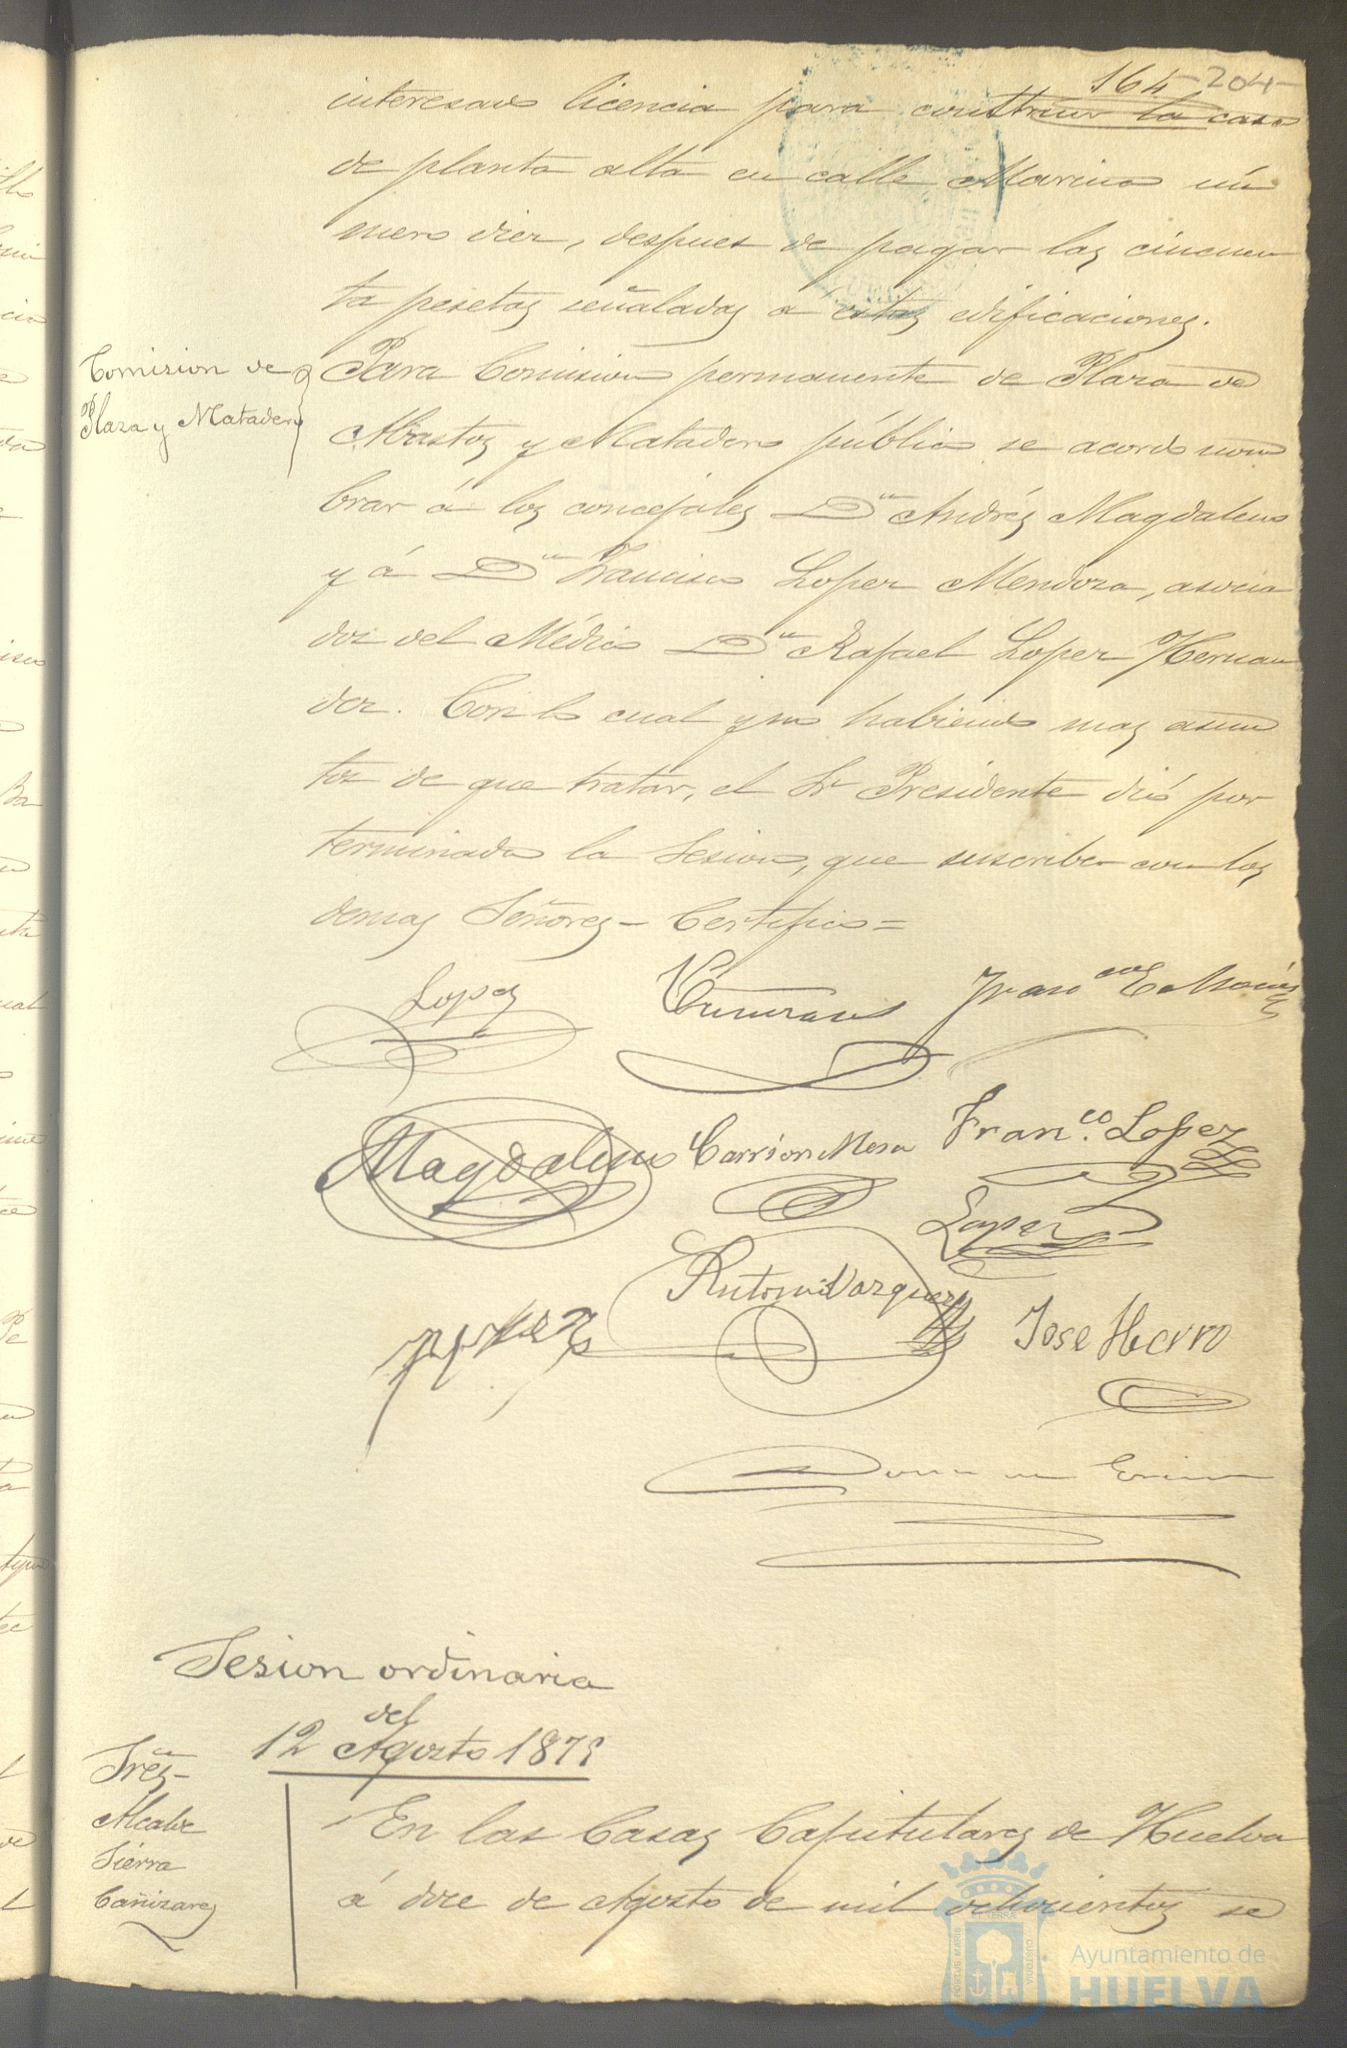 164 204
interesado licencia para construir la casa
de planta alta en calle Marina nú
mero diez, despues de pagar las cincuen
ta pesetas señaladas a estas edificaciones.
Comision de
Plaza y Matadero
Para Comision permanente de Plaza de
Abastos y Matadero público se acordó nom
brar á los concejales Dn Andrés Magdaleno
y á Dn Francisco Lopez Mendoza, asocia
dos del Médico Dn Rafael Lopez Hernan
dez. Con lo cual y no habiendo mas asun
tos de que tratar, el Sr Presidente dió por
terminada la Sesion, que suscribe con los
demas Señores - Certifico =
Lopez
Franco
Magdaleno Carrion Mesa Franco. Lopez
Lopez
Antonio Vazquez
Jose Hierro
Sesion ordinaria
del
12 Agosto 1879
Sres
Alcalde
Sierra
Cañizares
En las Casas Capitulares de Huelva
á doce de Agosto de mil ochocientos se
Ayuntamiento de
HUELVA